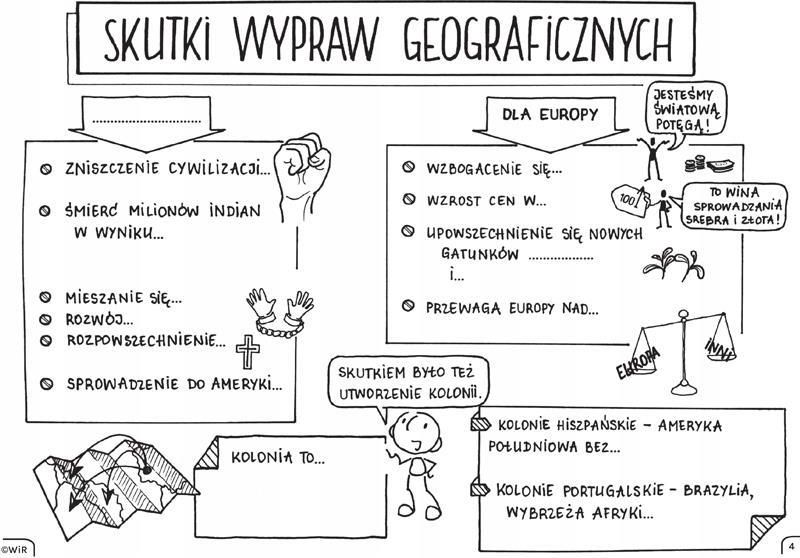 SKUTKI WYPRAW GEOGRAFICZNYCH
..............................
ZNISZCZENIE CYWILIZACJI...
ŚMIERĆ MILIONÓW INDIAN
W WYNIKU...
MIESZANIE SIĘ...
ROZWÓJ...
ROZPOWSZECHNIENIE...
SPROWADZENIE DO AMERYKI...
DLA EUROPY
JESTEŚMY
ŚWIATOWĄ
POTĘGĄ!
WZBOGACENIE SIĘ...
WZROST CEN W...
100
TO WINA
SPROWADZANIA
SREBRA I ZŁOTA!
UPOWSZECHNIENIE SIĘ NOWYCH
GATUNKÓW ..................
I...
PRZEWAGA EUROPY NAD...
EUROPA
INNI
SKUTKIEM BYŁO TEŻ
UTWORZENIE KOLONII.
KOLONIA TO...
KOLONIE HISZPAŃSKIE – AMERYKA
POŁUDNIOWA BEZ...
KOLONIE PORTUGALSKIE – BRAZYLIA,
WYBRZEŻA AFRYKI...
©WiR
4